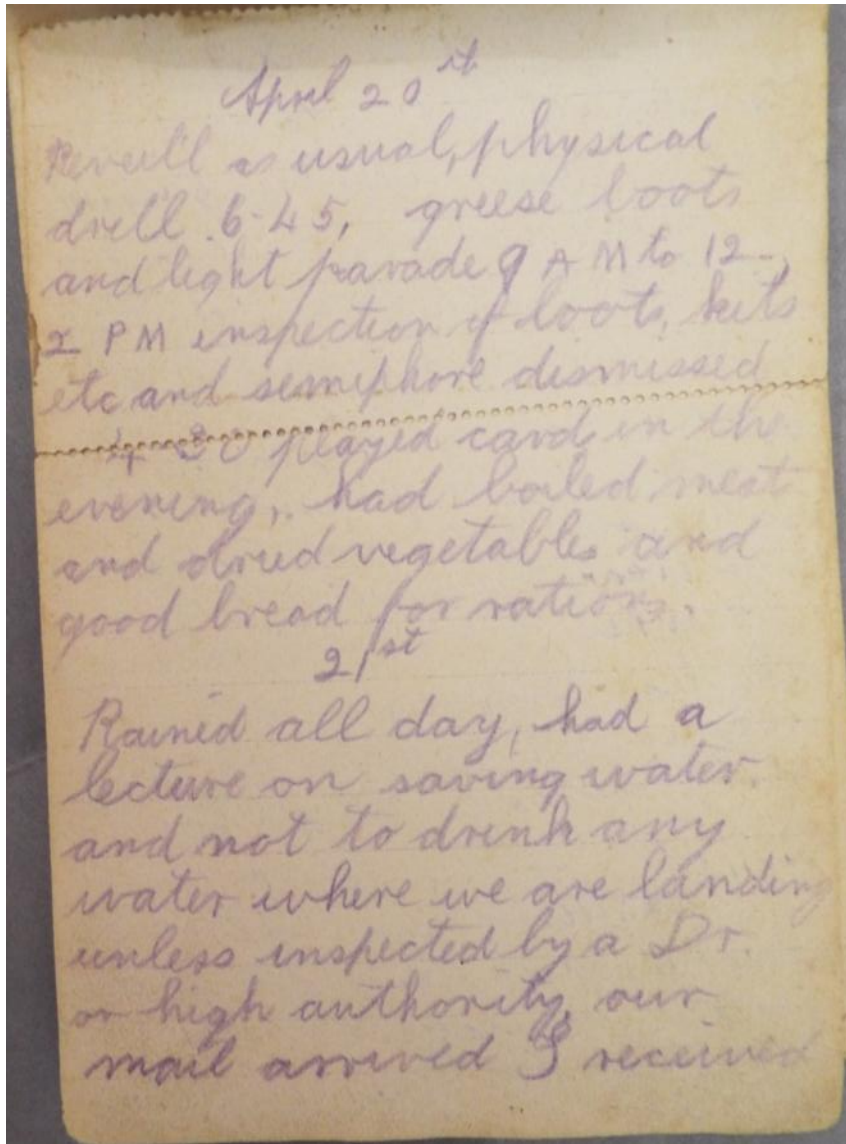 April 20th
Reveill as usual, physical
drill 6.45, greese boots
and light parade 9 AM to 12-,
2 PM inspection of boots, kits
etc and semiphore dismissed
4 30 played cards in the
evening, had boiled meat
and dried vegetables and
good bread for rations.
21st
Rained all day, had a
lecture on saving water
and not to drink any
water where we are landing
unless inspected by a Dr.
or high authority, our
mail arrived I received